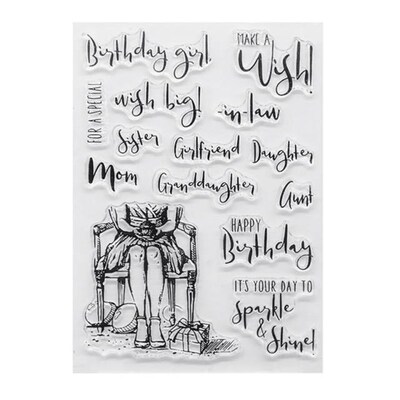 Birthday girl
MAKE A
Wish!
FOR A SPECIAL
wish big!
-in-law
Sister
Girlfriend
Daughter
Mom
Granddaughter
Aunt
HAPPY
Birthday
IT'S YOUR DAY TO
Sparkle
&
Shine!